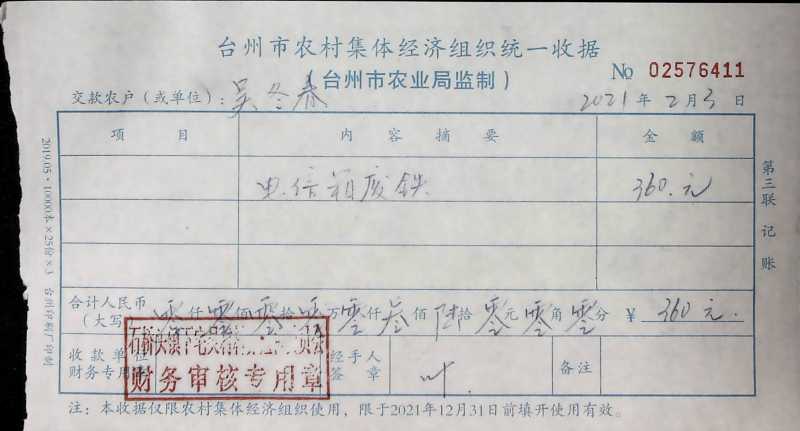 台州市农村集体经济组织统一收据
(台州市农业局监制)
No 02576411
交款农户(或单位): 吴冬春 2021年2月3日
项目 内容摘要 金额
电信箱废铁 360.元
合计人民币(大写) 零仟零佰零拾零万零仟叁佰陆拾零元零角零分 ¥ 360元.
收款单位财务专用章 经手人签章 叶 备注
财务审核专用章
注:本收据仅限农村集体经济组织使用,限于2021年12月31日前填开使用有效。
第三联 记账
2019.05·10000本×25份×3 台州印刷厂印制